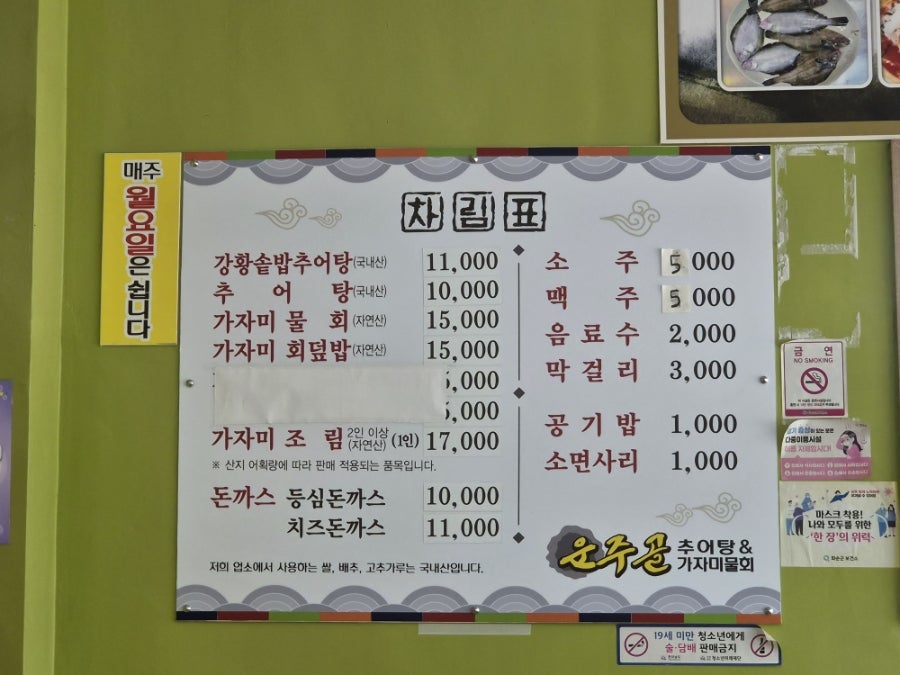 매주
월요일은 쉽니다
차림표
강황솥밥추어탕(국내산) 11,000
추어탕(국내산) 10,000
가자미물회(자연산) 15,000
가자미회덮밥(자연산) 15,000
5,000
5,000
가자미조림 2인 이상 (자연산) (1인) 17,000
※ 산지 어획량에 따라 판매 적용되는 품목입니다.
돈까스 등심돈까스 10,000
치즈돈까스 11,000
저희 업소에서 사용하는 쌀, 배추, 고추가루는 국내산입니다.
소주 5,000
맥주 5,000
음료수 2,000
막걸리 3,000
공기밥 1,000
소면사리 1,000
운주골 추어탕 &
가자미물회
금연
NO SMOKING
다중이용시설
마스크 착용!
나와 모두를 위한
'한 장'의 위력
화순군 보건소
19세 미만 청소년에게
술·담배 판매금지